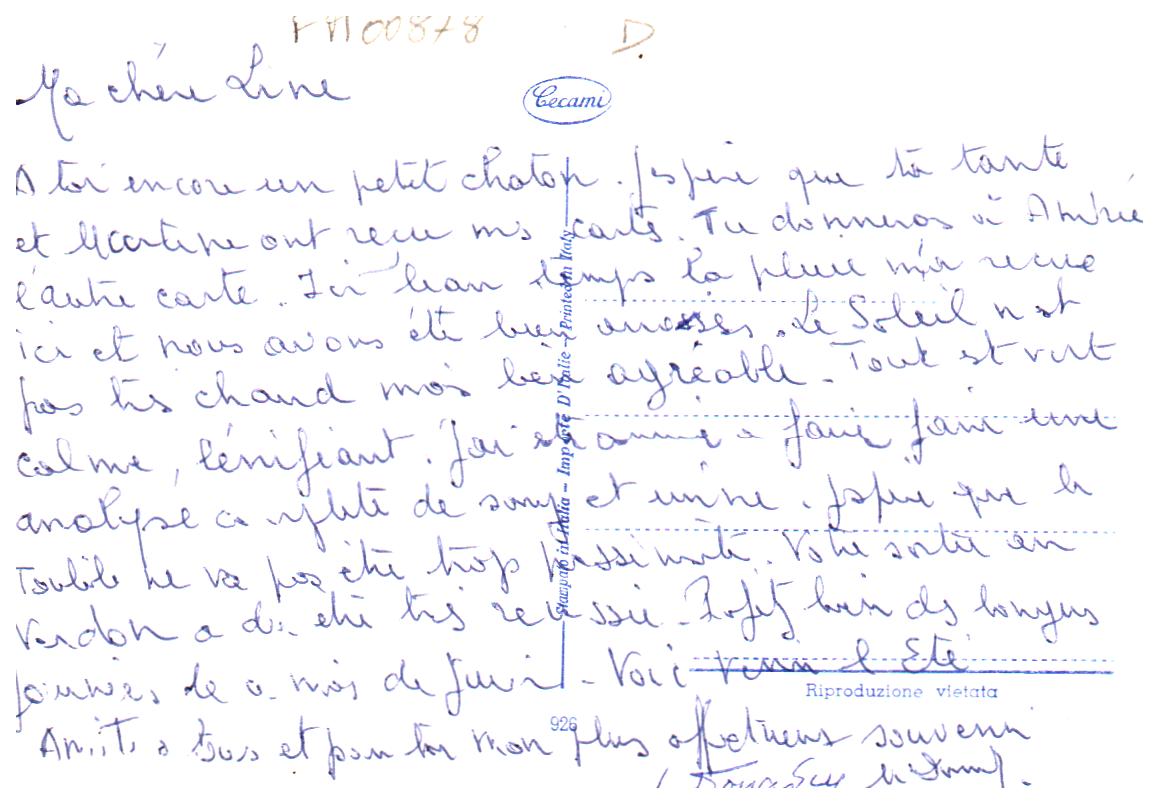 FM00878 D.
Ma chère Line
Cecami
A toi encore un petit chaton. J'espère que ta tante
et Martine ont reçu mes cartes. Tu donneras à Andrée
l'autre carte. Ici beau temps la pluie m'a reçue
ici et nous avons été bien arrosés. Le Soleil n'est
pas très chaud mais bien agréable. Tout est vert
calme, lénifiant. J'ai à faire faire une
analyse complète de sang et urine. J'espère que le
ne va pas être trop pessimiste. Votre sortie au
Verdon a dû être très réussie. Profitez bien des longues
journées de ce mois de Juin - Voici venir l'Eté
Amitiés à tous et pour toi mon plus affectueux souvenir
Stampato in Italia - Imprimé D'Italie - Printed in Italy
Riproduzione vietata
926